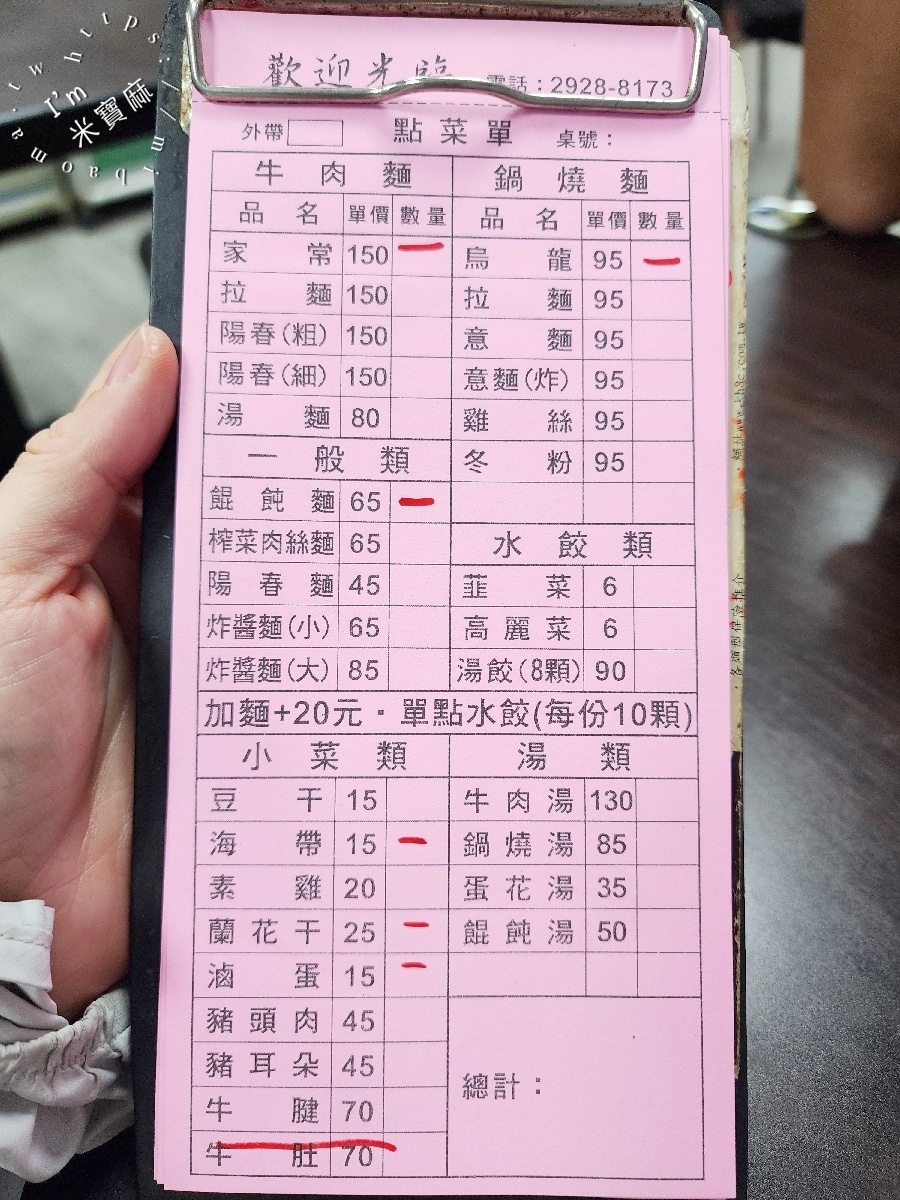 I'm
米寶麻
歡迎光臨 電話：2928-8173
外帶 點菜單 桌號：
牛肉麵 鍋燒麵
品名 單價 數量 品名 單價 數量
家常 150 一 烏龍 95 一
拉麵 150 拉麵 95
陽春(粗) 150 意麵 95
陽春(細) 150 意麵(炸) 95
湯麵 80 雞絲 95
一般類 冬粉 95
餛飩麵 65 一
榨菜肉絲麵 65 水餃類
陽春麵 45 韮菜 6
炸醬麵(小) 65 高麗菜 6
炸醬麵(大) 85 湯餃(8顆) 90
加麵+20元・單點水餃(每份10顆)
小菜類 湯類
豆干 15 牛肉湯 130
海帶 15 一 鍋燒湯 85
素雞 20 蛋花湯 35
蘭花干 25 一 餛飩湯 50
滷蛋 15 一
豬頭肉 45
豬耳朵 45 總計：
牛腱 70
牛肚 70